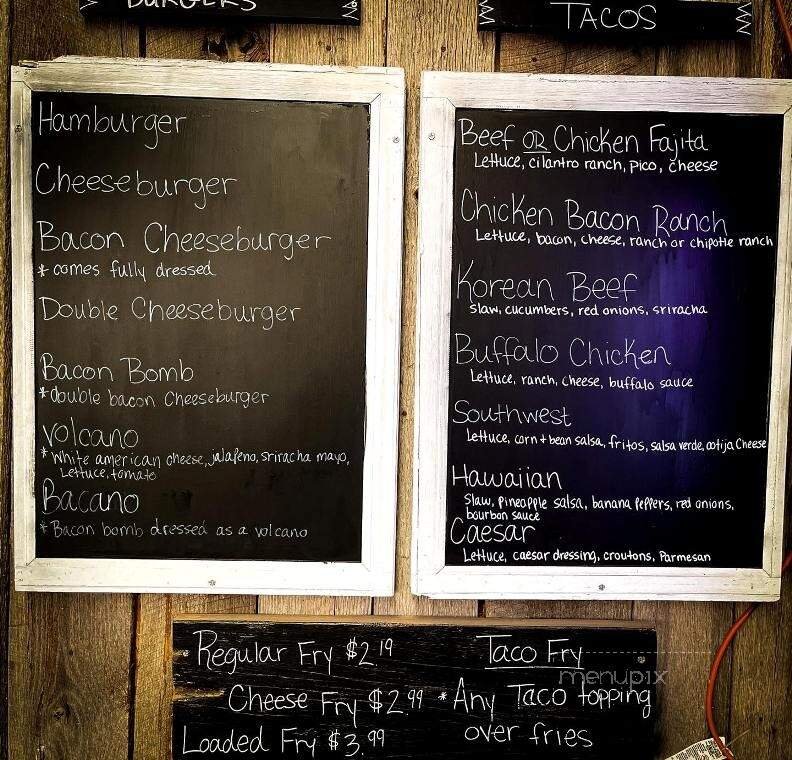 BURGERS
Hamburger
Cheeseburger
Bacon Cheeseburger
* comes fully dressed
Double Cheeseburger
Bacon Bomb
* double bacon Cheeseburger
Volcano
* White american cheese, jalapeno, sriracha mayo,
Lettuce, tomato
Bacano
* Bacon bomb dressed as a volcano
TACOS
Beef OR Chicken Fajita
Lettuce, cilantro ranch, pico, cheese
Chicken Bacon Ranch
Lettuce, bacon, cheese, ranch or chipotle ranch
Korean Beef
Slaw, cucumbers, red onions, sriracha
Buffalo Chicken
Lettuce, ranch, cheese, buffalo sauce
Southwest
Lettuce, corn + bean salsa, fritos, salsa verde, cotija Cheese
Hawaiian
Slaw, Pineapple salsa, banana peppers, red onions,
bourbon sauce
Caesar
Lettuce, caesar dressing, croutons, Parmesan
Regular Fry $2.19
Cheese Fry $2.99
Loaded Fry $3.99
Taco Fry
* Any Taco topping
over fries
menupix